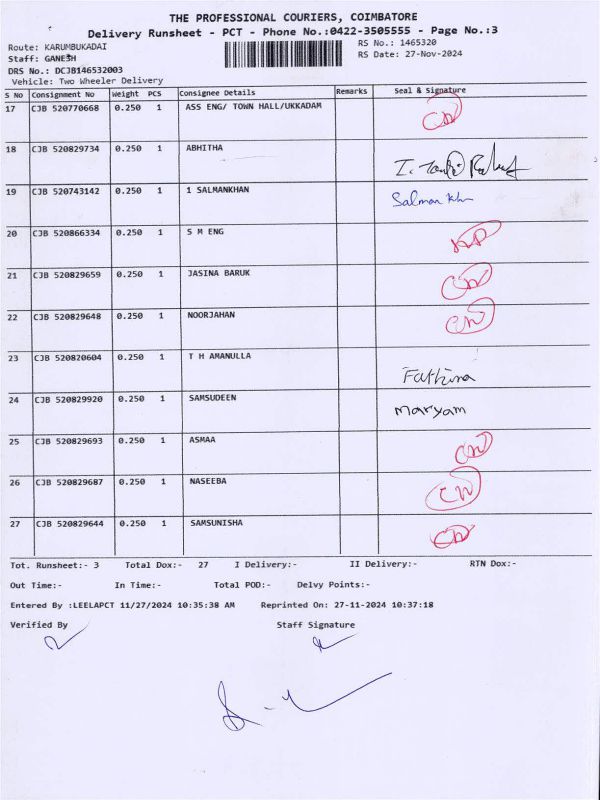 THE PROFESSIONAL COURIERS, COIMBATORE
Delivery Runsheet - PCT - Phone No.:0422-3505555 - Page No.:3
Route: KARUMBUKADAI
RS No.: 1465320
Staff: GANESH
RS Date: 27-Nov-2024
DRS No.: DCJB146532003
Vehicle: Two Wheeler Delivery
S No Consignment No Weight PCS Consignee Details Remarks Seal & Signature
17 CJB 520770668 0.250 1 ASS ENG/ TOWN HALL/UKKADAM
18 CJB 520829734 0.250 1 ABHITHA
19 CJB 520743142 0.250 1 1 SALMANKHAN Salman Khan
20 CJB 520866334 0.250 1 S M ENG
21 CJB 520829659 0.250 1 JASINA BARUK
22 CJB 520829648 0.250 1 NOORJAHAN
23 CJB 520820604 0.250 1 T H AMANULLA
Fathima
24 CJB 520829920 0.250 1 SAMSUDEEN
Maryam
25 CJB 520829693 0.250 1 ASMAA
26 CJB 520829687 0.250 1 NASEEBA
27 CJB 520829644 0.250 1 SAMSUNISHA
Tot. Runsheet:- 3 Total Dox:- 27 I Delivery:- II Delivery:- RTN Dox:-
Out Time:- In Time:- Total POD:- Delvy Points:-
Entered By :LEELAPCT 11/27/2024 10:35:38 AM Reprinted On: 27-11-2024 10:37:18
Verified By Staff Signature